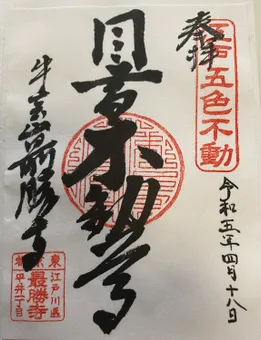 江戸五色不動
奉拝
令和五年四月十八日
目黄不動尊
牛宝山最勝寺
東京
江戸川区
最勝寺
平井一丁目